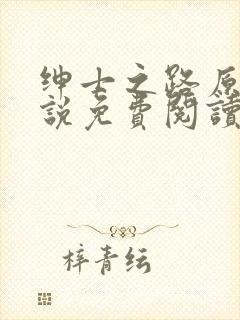 绅士之路原
說免費閱讀
梓青纭